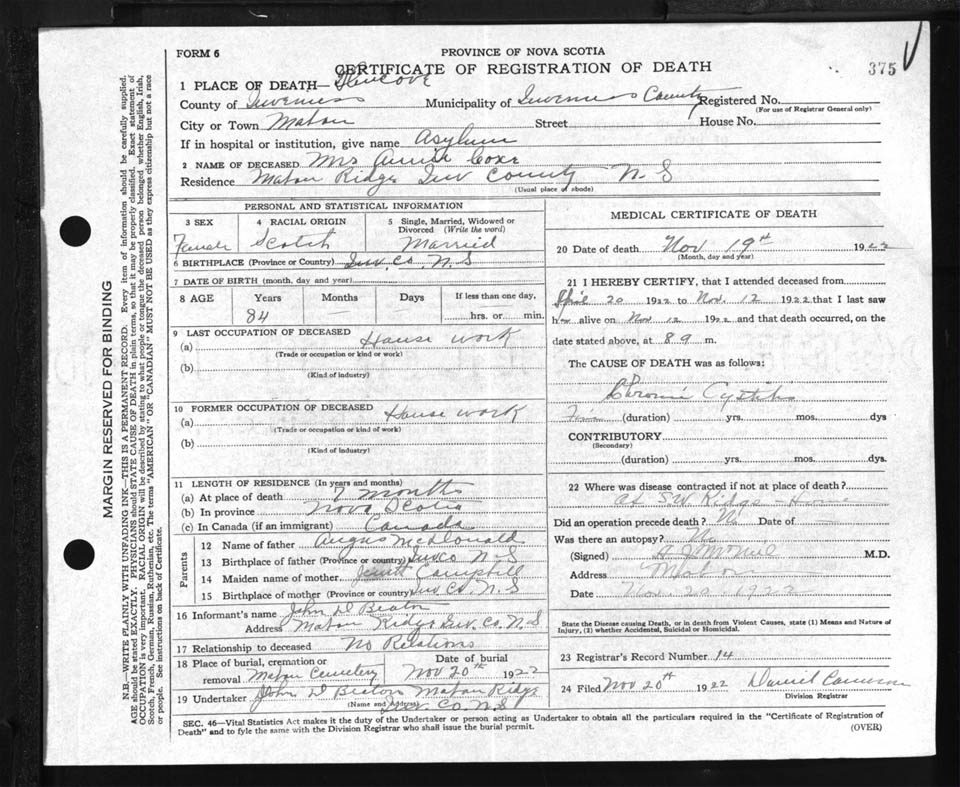 FORM 6
PROVINCE OF NOVA SCOTIA
CERTIFICATE OF REGISTRATION OF DEATH
375
1 PLACE OF DEATH— Glencove
County of Inverness Municipality of Inverness County Registered No.
(For use of Registrar General only)
City or Town Mabou Street House No.
If in hospital or institution, give name Asylum
2 NAME OF DECEASED Mrs Annie Coxe
Residence Mabou Ridge Inv County N. S
(Usual place of abode)
PERSONAL AND STATISTICAL INFORMATION
3 SEX Female
4 RACIAL ORIGIN Scotch
5 Single, Married, Widowed or Divorced (Write the word) Married
6 BIRTHPLACE (Province or Country) Inv. Co. N. S
7 DATE OF BIRTH (month, day and year)
8 AGE Years Months Days If less than one day,
84 hrs. or min.
9 LAST OCCUPATION OF DECEASED
(a) House work
(Trade or occupation or kind or work)
(b)
(Kind of industry)
10 FORMER OCCUPATION OF DECEASED
(a) House work
(Trade or occupation or kind of work)
(b)
(Kind of industry)
11 LENGTH OF RESIDENCE (In years and months)
(a) At place of death 7 months
(b) In province Nova Scotia
(c) In Canada (if an immigrant) Canada
Parents
12 Name of father Angus McDonald
13 Birthplace of father (Province or country) Inv Co N. S
14 Maiden name of mother Campbell
15 Birthplace of mother (Province or country) Inv Co. N. S
16 Informant's name John D Beaton
Address Mabou Ridge Inv. Co. N. S
17 Relationship to deceased No Relations
18 Place of burial, cremation or removal Mabou Cemetery
Date of burial Nov 20th 1922
19 Undertaker John D Beaton Mabou Ridge
(Name and Address) Inv Co. N S
MEDICAL CERTIFICATE OF DEATH
20 Date of death Nov 19th 1922
(Month, day and year)
21 I HEREBY CERTIFY, that I attended deceased from
April 20 1922 to Nov. 12 1922 that I last saw
her alive on Nov 12 1922 and that death occurred, on the
date stated above, at 8 9 m.
The CAUSE OF DEATH was as follows:
Chronic Cystitis
(duration) yrs. mos. dys
CONTRIBUTORY
(Secondary)
(duration) yrs. mos. dys.
22 Where was disease contracted if not at place of death?
At S.W. Ridge - Home
Did an operation precede death? No Date of
Was there an autopsy? No
(Signed) M.D.
Address Mabou
Date Nov. 20. 1922
State the Disease causing Death, or in death from Violent Causes, state (1) Means and Nature of
Injury, (2) whether Accidental, Suicidal or Homicidal.
23 Registrar's Record Number 14
24 Filed Nov 20th 1922 Daniel Cameron
Division Registrar
SEC. 46—Vital Statistics Act makes it the duty of the Undertaker or person acting as Undertaker to obtain all the particulars required in the "Certificate of Registration of
Death" and to fyle the same with the Division Registrar who shall issue the burial permit.
(OVER)
MARGIN RESERVED FOR BINDING
N.B.—WRITE PLAINLY WITH UNFADING INK—THIS IS A PERMANENT RECORD. Every item of information should be carefully supplied.
AGE should be stated EXACTLY. PHYSICIANS should STATE CAUSE OF DEATH in plain terms, so that it may be properly classified. Exact statement of
OCCUPATION is very important. RACIAL ORIGIN will be described by stating to what people or tongue the deceased person belonged whether English, Irish,
Scotch, French, German, Russian, Ruthenian, etc. The terms "AMERICAN" OR "CANADIAN" MUST NOT BE USED as they express citizenship but not a race
or people. See instructions on back of Certificate.